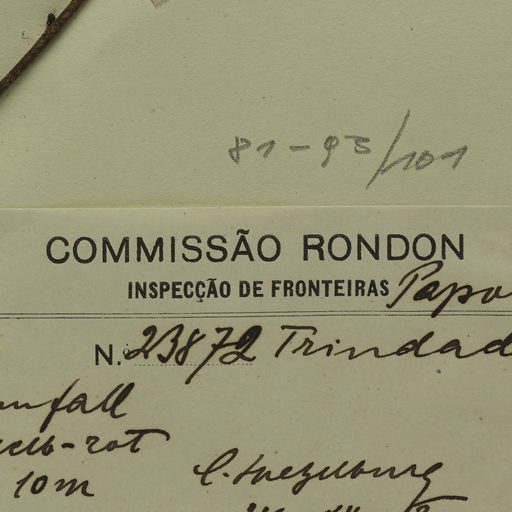 81-93/101
COMMISSÃO RONDON
INSPECÇÃO DE FRONTEIRAS Papo
N. 23872 Trindad
nfall
elb-rot
10m